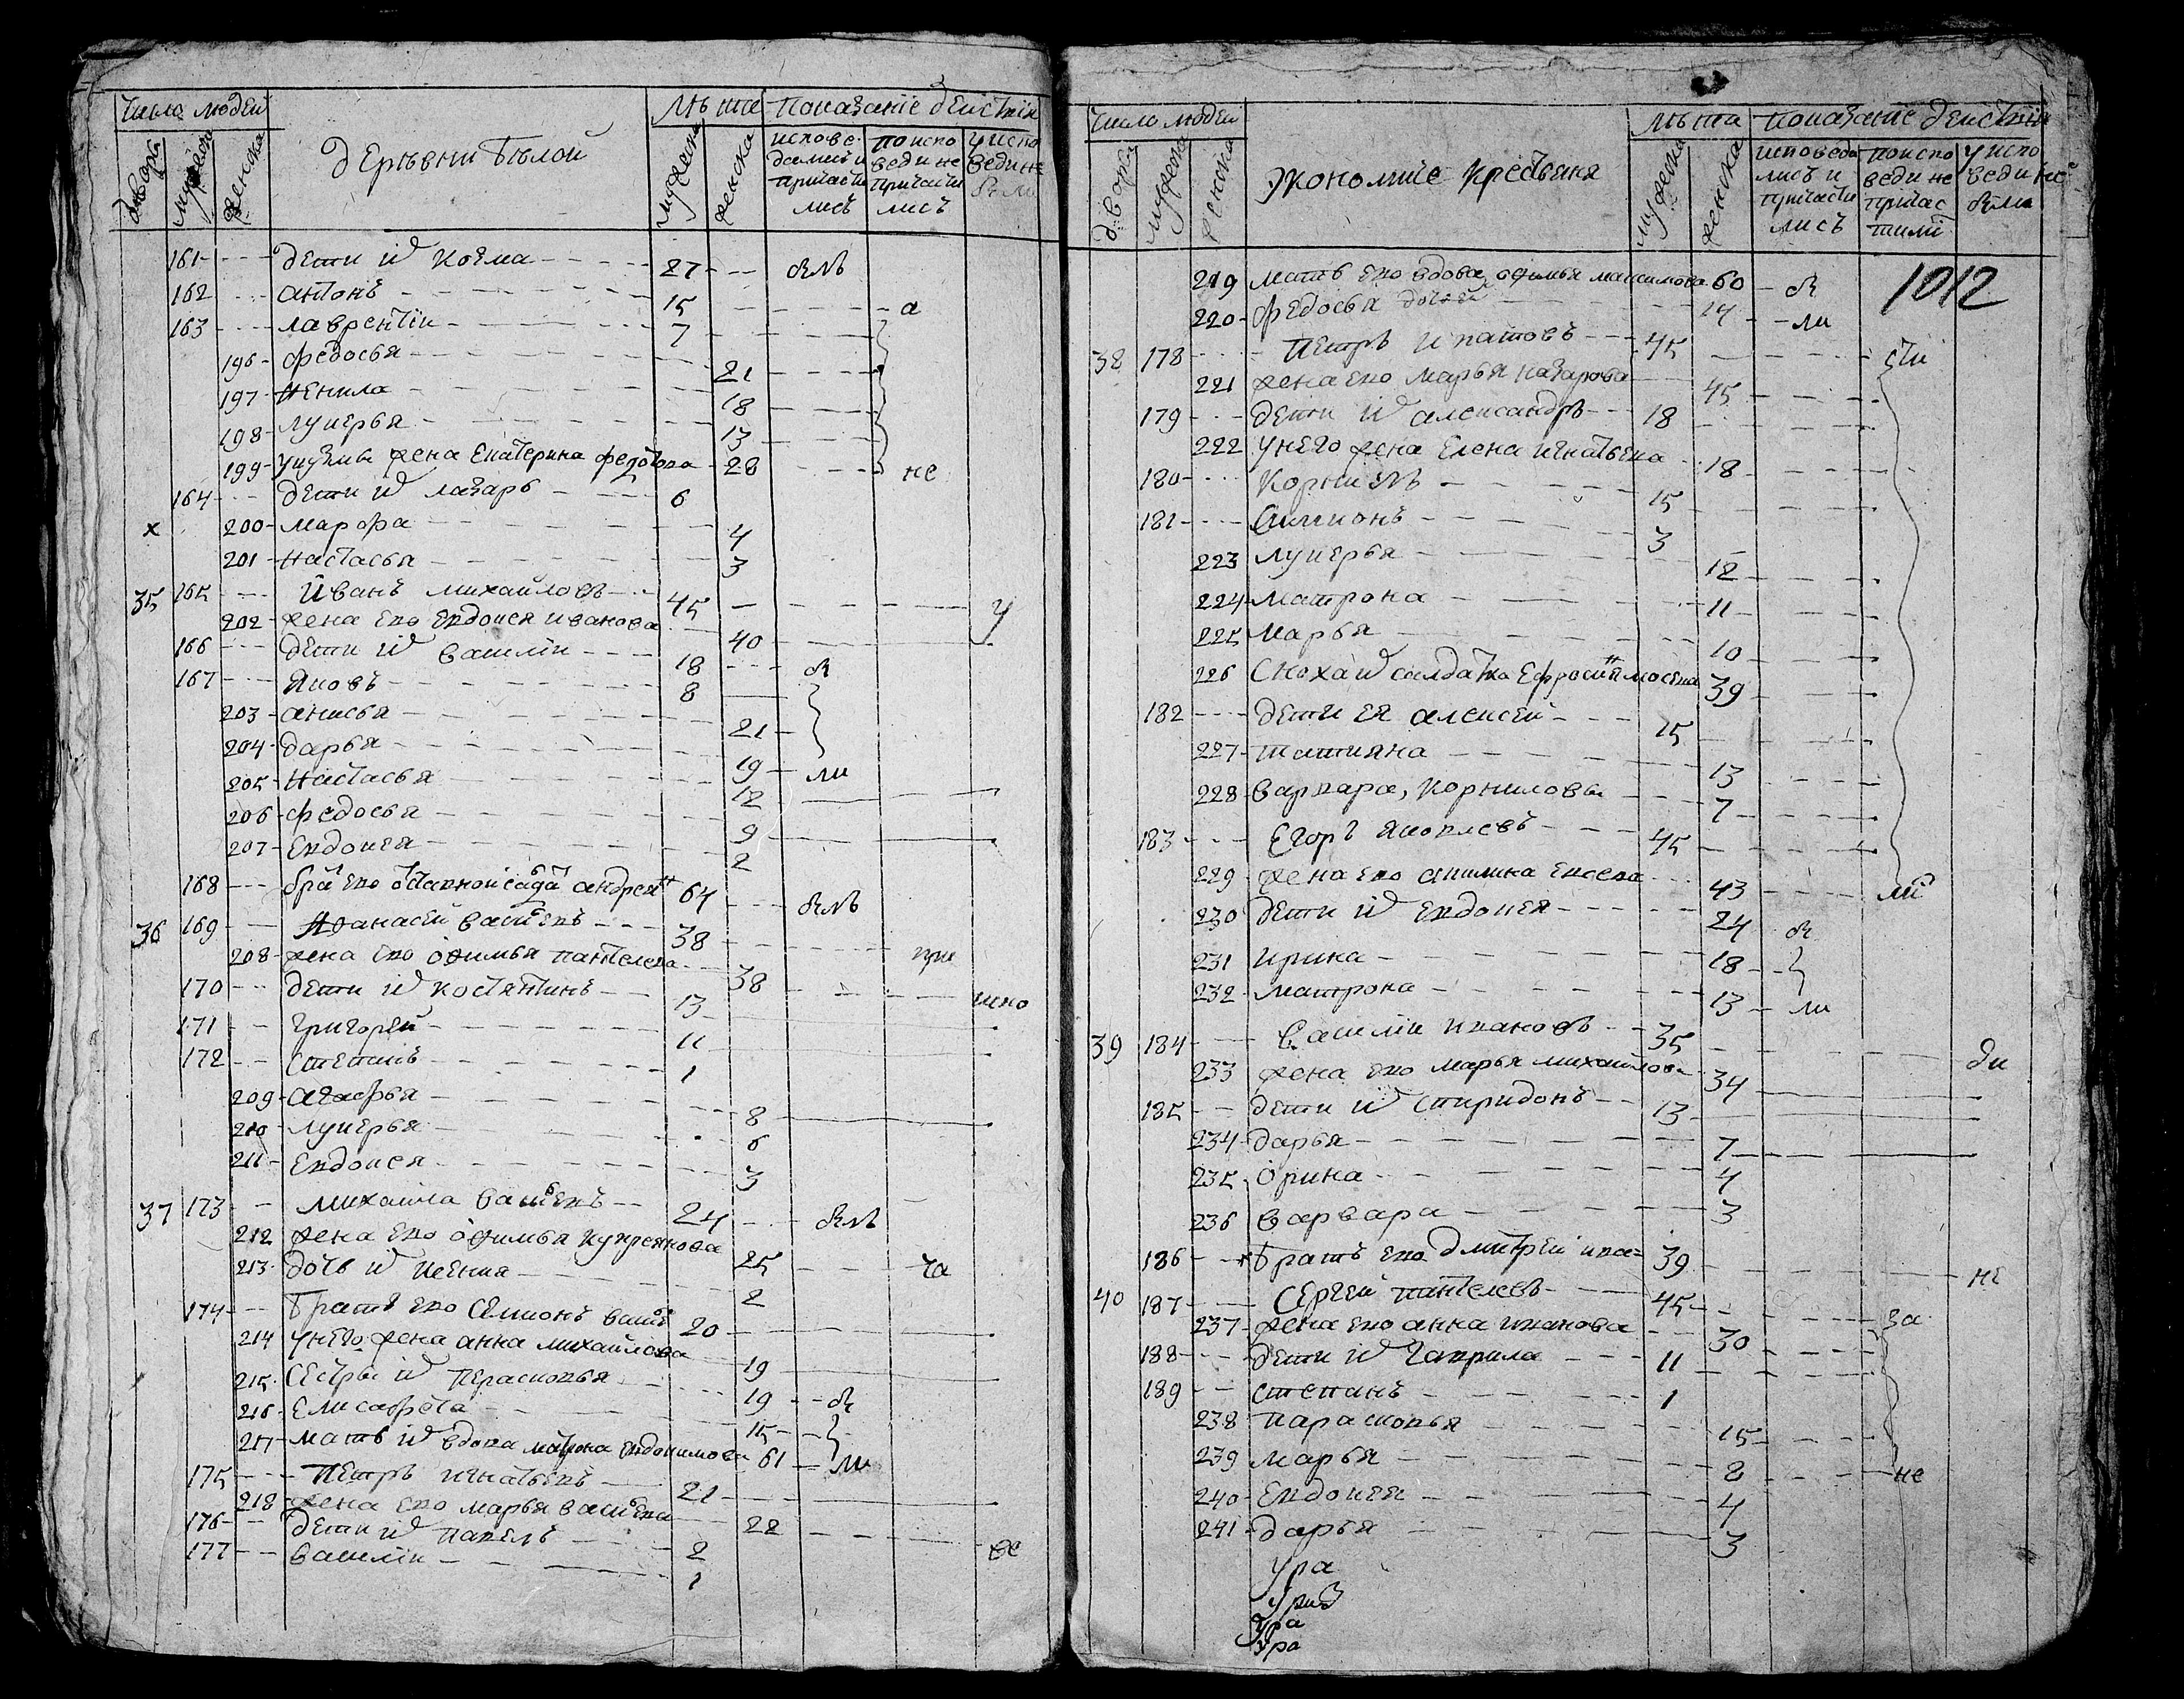 Число людей
Лѣта Показанiе действiя
дворы
мужеска
женска
деревни Белой
мужеска
женска
исповедались и причастились
по исповеди не причастились
у исповеди не были
161 дети их Козма 27 были
162 антонъ 15 а
163 лаврентiи 7
196 федосья 21
197 Ненила 18
198 лукерья 13
199 у кузмы жена Екатерина федотова 28 не
164 дети их лазарь 6
х 200 марфа 4
201 Настасья 3
35 165 Иванъ михайловъ 45 у
202 жена ево Евдокея иванова 40
166 дети их василiи 18 бы
167 Яковъ 8
203 анисья 21
204 дарья 19 ли
205 Настасья 12
206 федосья 9
207 Евдокея 2
168 брат ево андреян 64 были
36 169 Афанасеи васильевъ 38
208 жена ево офимья пантелева 38 при
170 дети их Костянтинъ 13
171 григореи 11
172 степанъ 1
209 агафья 8
210 лукерья 6
211 Евдокея 3
37 173 михаила васильевъ 24 были
212 жена ево офимья купреянова 25
213 дочь их ксения 2 ча
174 братъ ево Семионъ васи 20
214 у него жена анна михайлова 19
215 Сестры их Перасковья 19 бы
216 Елисафета 15
217 мать их вдова матрона евдокимова 61 ли
175 Петръ игнатьевъ 21
218 жена ево марья васильева 22
176 дети их павелъ 2
177 василiи 1
Число людей
Лѣта Показанiе действiя
дворы
мужеска
женска
Экономические крестьяня
мужеска
женска
исповедались и причастились
по исповеди не причастили
у исповеди не были
1012
219 мать ево вдова офимья максимова 60 бы
220 федосья дочь ей 14 ли
38 178 Петръ ипатовъ 45 сти
221 жена ево марья назарова 45
179 дети их александръ 18
222 у него жена Елена игнатьева 18
180 Корнилъ 15
181 Симионъ 3
223 лукерья 12
224 матрона 11
225 марья 10
226 Сноха их салдатка Ефросинья 39
182 дети ея алексеи 15
227 татияна 13
228 варвара, Корниловы 7
183 Егоръ яковлевъ 45
229 жена ево акилина 43 ли
230 дети их Евдокея 24 бы
231 ирина 18
232 матрона 13 ли
39 184 василiи ивановъ 35
233 жена ево марья михайлов 34
185 дети их спиридонъ 13
234 дарья 7
235 орина 4
236 варвара 3
186 братъ ево дмитреи ива= 39 не
40 187 Сергеи пантелевъ 45 за
237 жена ево анна иванова 30
188 дети их гаврила 11
189 степанъ 1
238 парасковья 15
239 марья 8 не
240 Евдокея 4
241 дарья 3